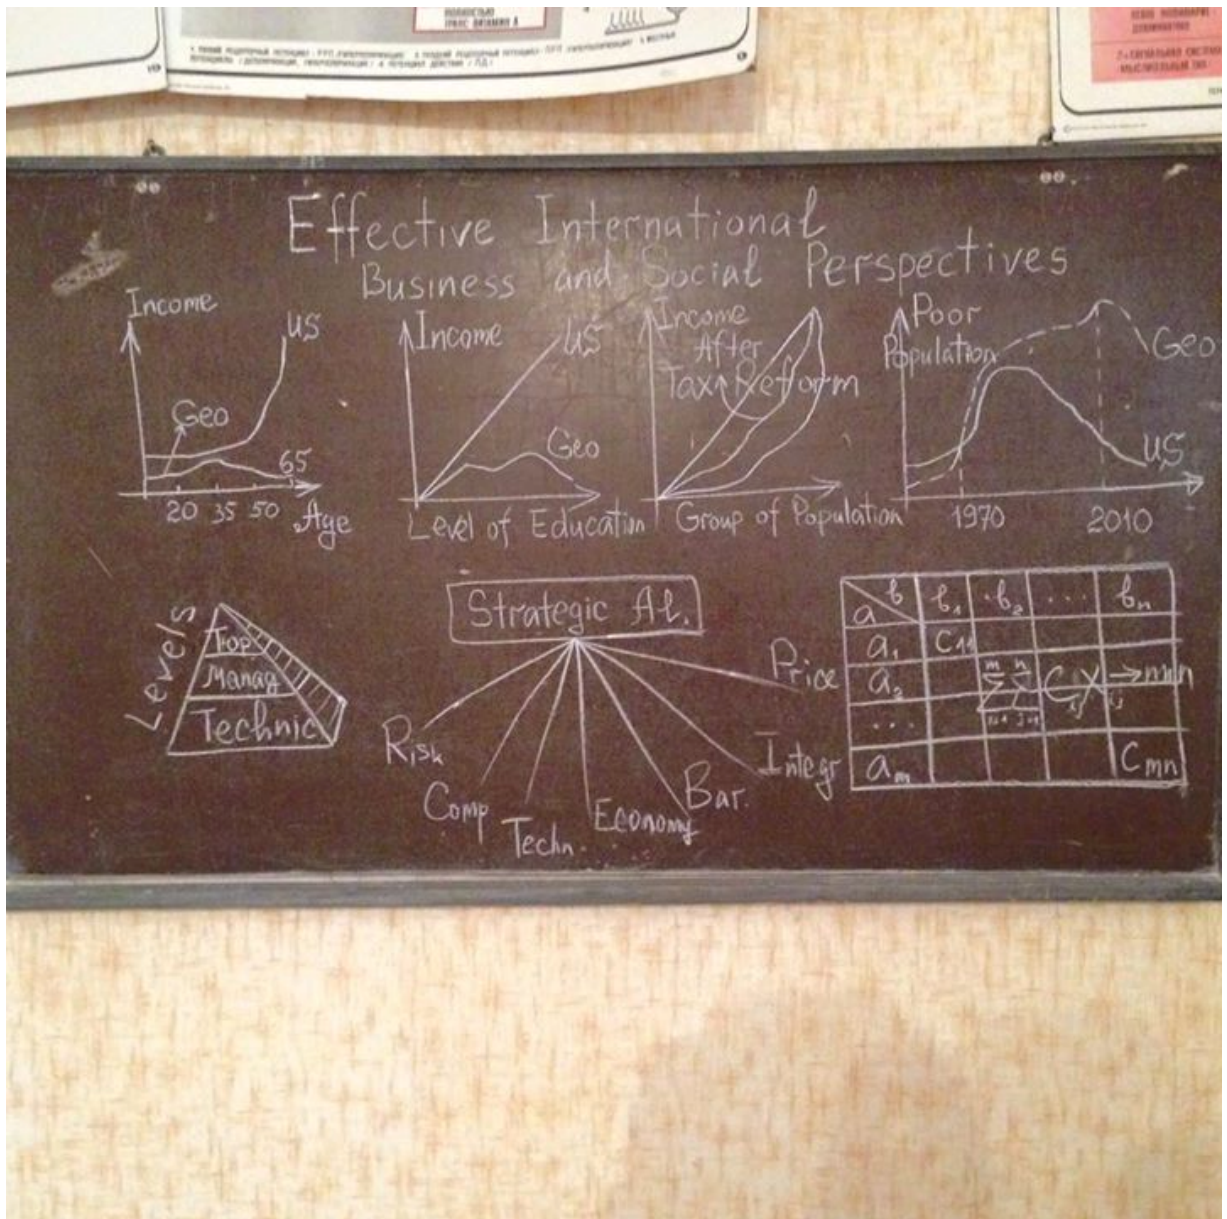 ПОЛНОСТЬЮ
ТРАНС-ВИТАМИН А
Effective International
Business and Social Perspectives
Income
US
Geo
65
20 35 50 Age
Income
US
Geo
Level of Education
Income
After
Tax Reform
Group of Population
Poor
Population
Geo
US
1970 2010
Levels
Top
Manag
Technic
Strategic Al.
Risk
Comp
Techn.
Economy
Bar.
Integr
Price
a b b₁ b₂ ... bₙ
a₁ C₁₁
a₂
m n
Σ Σ Cᵢⱼ Xᵢⱼ → min
i=1 j=1
...
aₘ Cₘₙ